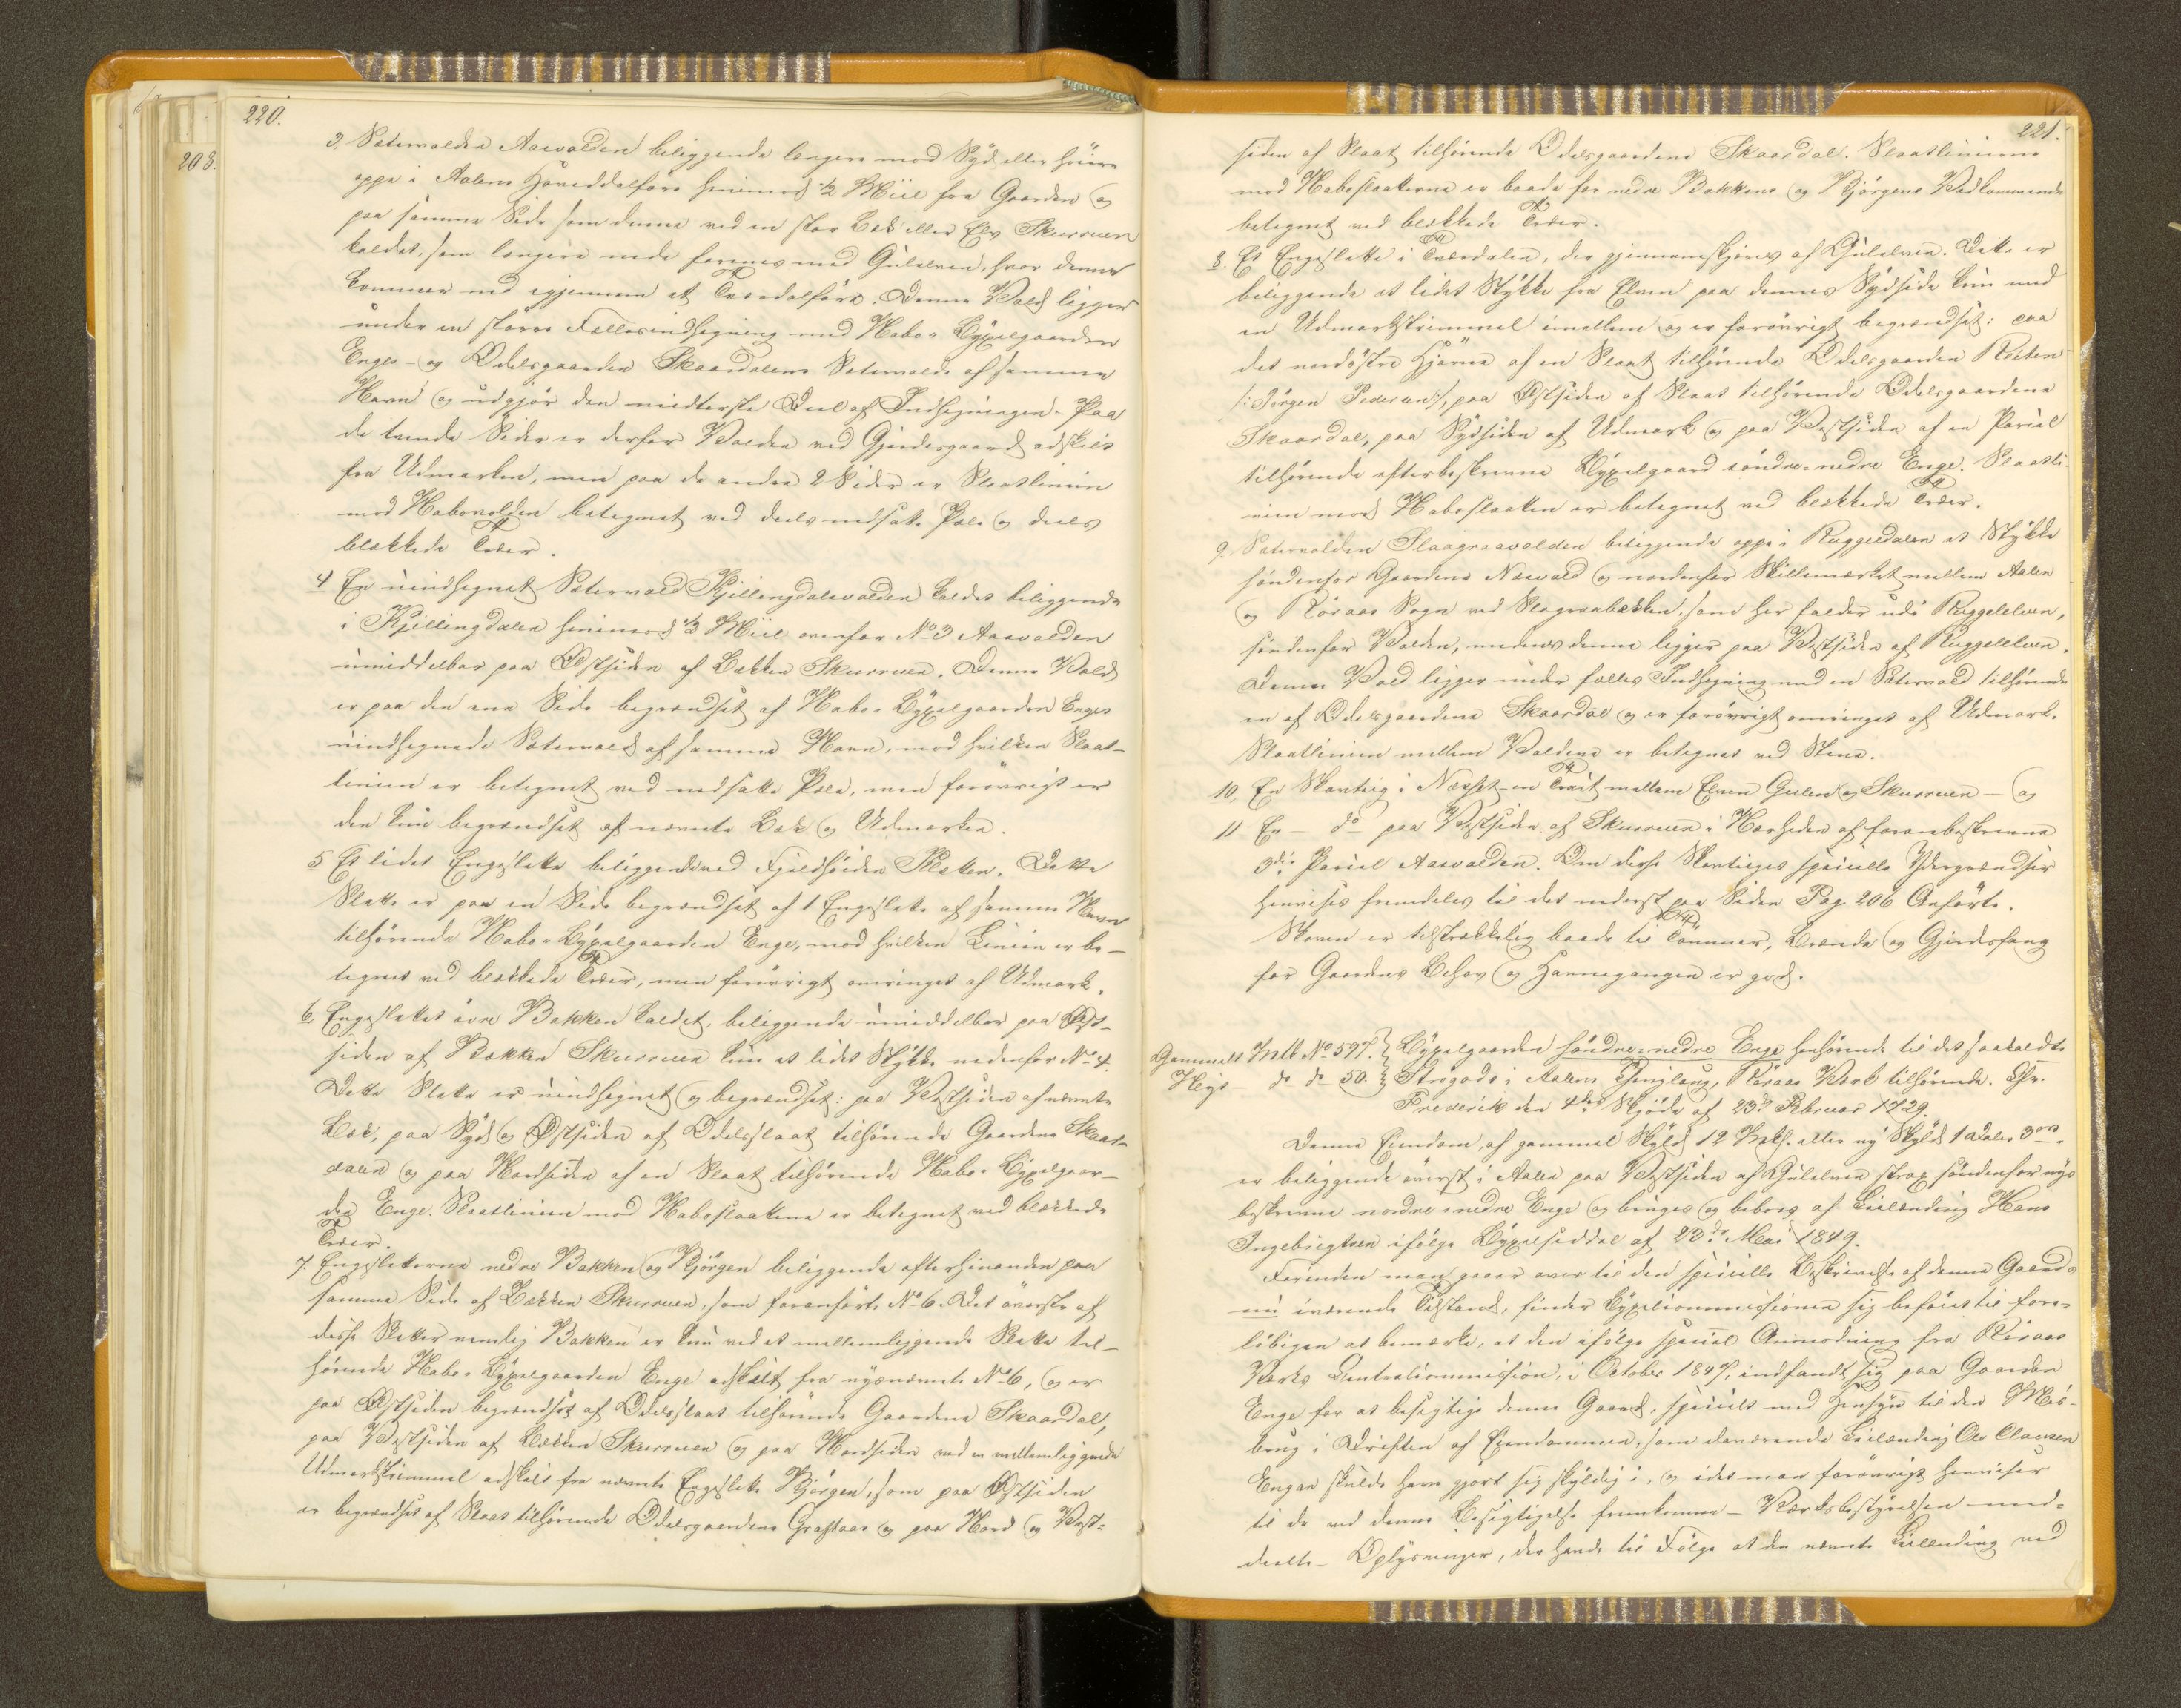 220.
208.
3. Sætervolden Aasvolden beliggende længere mod Syd eller høiere
oppe i Aalens Hoveddalføre henimod 1/2 Miil fra Gaarden og
paa samme Side som denne ved en stor Bæk eller Elv Skurruen
kaldet, som længere nede forenes med Gulelven, hvor denne
kommer ned igjennem et Tverdalføre. Denne Vold ligger
under en større Fællesindhegning med Nabo- Bÿxelgaarden
Enges- og Odelsgaarden Skaardalens Sætervolde af samme
Navn og udgjør den midterste Deel af Indhegningen. Paa
de tvende Sider er derfor Volden ved Gjerdesgaard adskilt
fra Udmarken, men paa de andre 2 Sider er Slaatlinien
mod Nabovolden betegnet ved deels nedsatte Pæle og deels
blekkede Træer.
4 En uindhegnet Sætervold Kjillingdalsvolden kaldet beliggende
i Kjillingdalen henimod 1/3 Miil ovenfor No 3 Aasvolden
umiddelbar paa Østsiden af Bækken Skurruen. Denne Vold
er paa den ene Side begrændset af Nabo- Bÿxelgaarden Enges
uindhegnede Sætervold af samme Navn, mod hvilken Slaat-
linien er betegnet ved nedsatte Pæle, men forøvrigt er
den kun begrændset af nævnte Bæk og Udmarken.
5 Et lidet Engeslette beliggende ved Fjeldhøiden Kletten. Dette
Slette er paa en Side begrændset af 1 Engeslette af samme Navn
tilhørende Nabo- Bÿxelgaarden Enge, mod hvilken Linien er be-
tegnet ved blekkede Træer, men forøvrigt omringet af Udmark.
6. Engeslettet øvre Bakken kaldet, beliggende umiddelbar paa Øst-
siden af Bækken Skurruen kun et lidet Stÿkke nedenfor No 4.
Dette Slette er uindhegnet og begrændset: paa Vestsiden af nævnte
Bæk, paa Syd og Østsiden af Odelsslaat tilhørende Gaardene Skaar-
dalen og paa Nordsiden af en Slaat tilhørende Nabo- Bÿxelgaar-
den Enge. Slaatlinien mod Naboslaatterne er betegnet ved blekkede
Træer.
7. Engesletterne nedre Bakken og Bjørgen beliggende efter hinanden paa
samme Side af Bækken Skurruen, som foranførte No 6. Det øverste af
disse Sletter nemlig Bakken er kun ved et mellemliggende Slette til-
hørende Nabo- Bÿxelgaarden Enge adskilt fra nysnævnte No 6, og er
paa Østsiden begrændset af Odelsslaat tilhørende Gaardene Skaardal,
paa Vestsiden af Bækken Skurruen og paa Nordsiden ved en mellemliggende
Udmarkstrimmel adskilt fra nævnte Engeslette Bjørgen, som paa Østsiden
er begrændset af Slaat tilhørende Odelsgaardene Graftaas og paa Nord og Vest-
221.
siden af Slaat tilhørende Odelsgaardene Skaardal. Slaatlinierne
mod Naboslaatterne er baade for nedre Bakkens og Bjørgens Vedkommende
betegnet ved blekkede Træer.
8. Et Engeslette i Tverdalen, der gjennemskjæres af Gulelven. Dette er
beliggende et lidet Stÿkke fra Elven paa dennes Sÿdside kun med
en Udmarkstrimmel imellem og er forøvrigt begrændset: paa
det nordøstre Hjørne af en Slaat tilhørende Odelsgaarden Reiten
/: Jørgen Pedersen :/, paa Østsiden af Slaat tilhørende Odelsgaardene
Skaardal, paa Sÿdsiden af Udmark og paa Vestsiden af en Parcel
tilhørende efterbeskrevne Bÿxelgaard søndre-nedre Enge. Slaatli-
nien mod Naboslaatten er betegnet ved blekkede Træer.
9. Sætervolden Slaagraavolden beliggende oppe i Ruggeldalen et Stÿkke
søndenfor Gaardene Næsvold og nordenfor Skillemærket mellem Aalen
og Røraas Sogn ved Slagraabækken, som her falder ud i Ruggelelven,
søndenfor Volden, medens denne ligger paa Vestsiden af Ruggelelven.
Denne Vold ligger under fælles Indhegning med en Sætervold tilhørende
en af Odelsgaardene Skaardal og er forøvrigt omringet af Udmark.
Slaatlinien mellem Voldene er betegnet ved Stene.
10, En Skovteig i Næsset - en Tract mellem Elven Gulen og Skurruen - og
11 En - do paa Vestsiden af Skurruen i Nærheden af foranbeskrevne
3die Parcel Aasvolden. Om disse Skovteiges specielle Ydergrændser
henvises fremdeles til det nederst paa Siden Pag. 206 Anførte.
Skoven er tilstrækkelig baade til Tømmer, Brænde og Gjerdefang
for Gaardens Behov og Havnegangen er god.
Gammelt Matr No 597. } Bÿxelgaarden søndre-nedre Enge henhørende til det saakaldte
Nyt - do do 50. } Strøgods i Aalens Thinglaug, Røraas Værk tilhørende. Cfr.
Frederik den 4des Skjøde af 23de Februar 1729.
Denne Eiendom, af gammel Skÿld 12 Mk. eller nÿ Skÿld 1 Daler 3 ort
er beliggende øverst i Aalen paa Vestsiden af Gulelven strax søndenfor nys
beskrevne nordre-nedre Enge og bruges og beboes af Leilænding Hans
Ingebrigtsen ifølge Bÿxelseddel af 23de Mai 1849.
Førinden man gaaer over til den specielle Beskrivelse af denne Gaards
nu iværende Tilstand, finder Bÿxelcommissionen sig beføiet til fore-
løbigen at bemærke, at den ifølge speciel Anmodning fra Røraas
Værks Centralcommission, i October 1847, indfandt sig paa Gaarden
Enge for at besigtige denne Gaard, specielt med Hensÿn til den Mis-
brug i Driften af Eiendommen, som daværende Leilænding Ole Clausen
Engan skulde have gjort sig skÿldig i, og idet man forøvrigt henviser
til de ved denne Besigtigelse fremkomne - Værksbestyrelsen med-
deelte - Oplÿsninger, der havde til Følge at den nævnte Leilænding ved